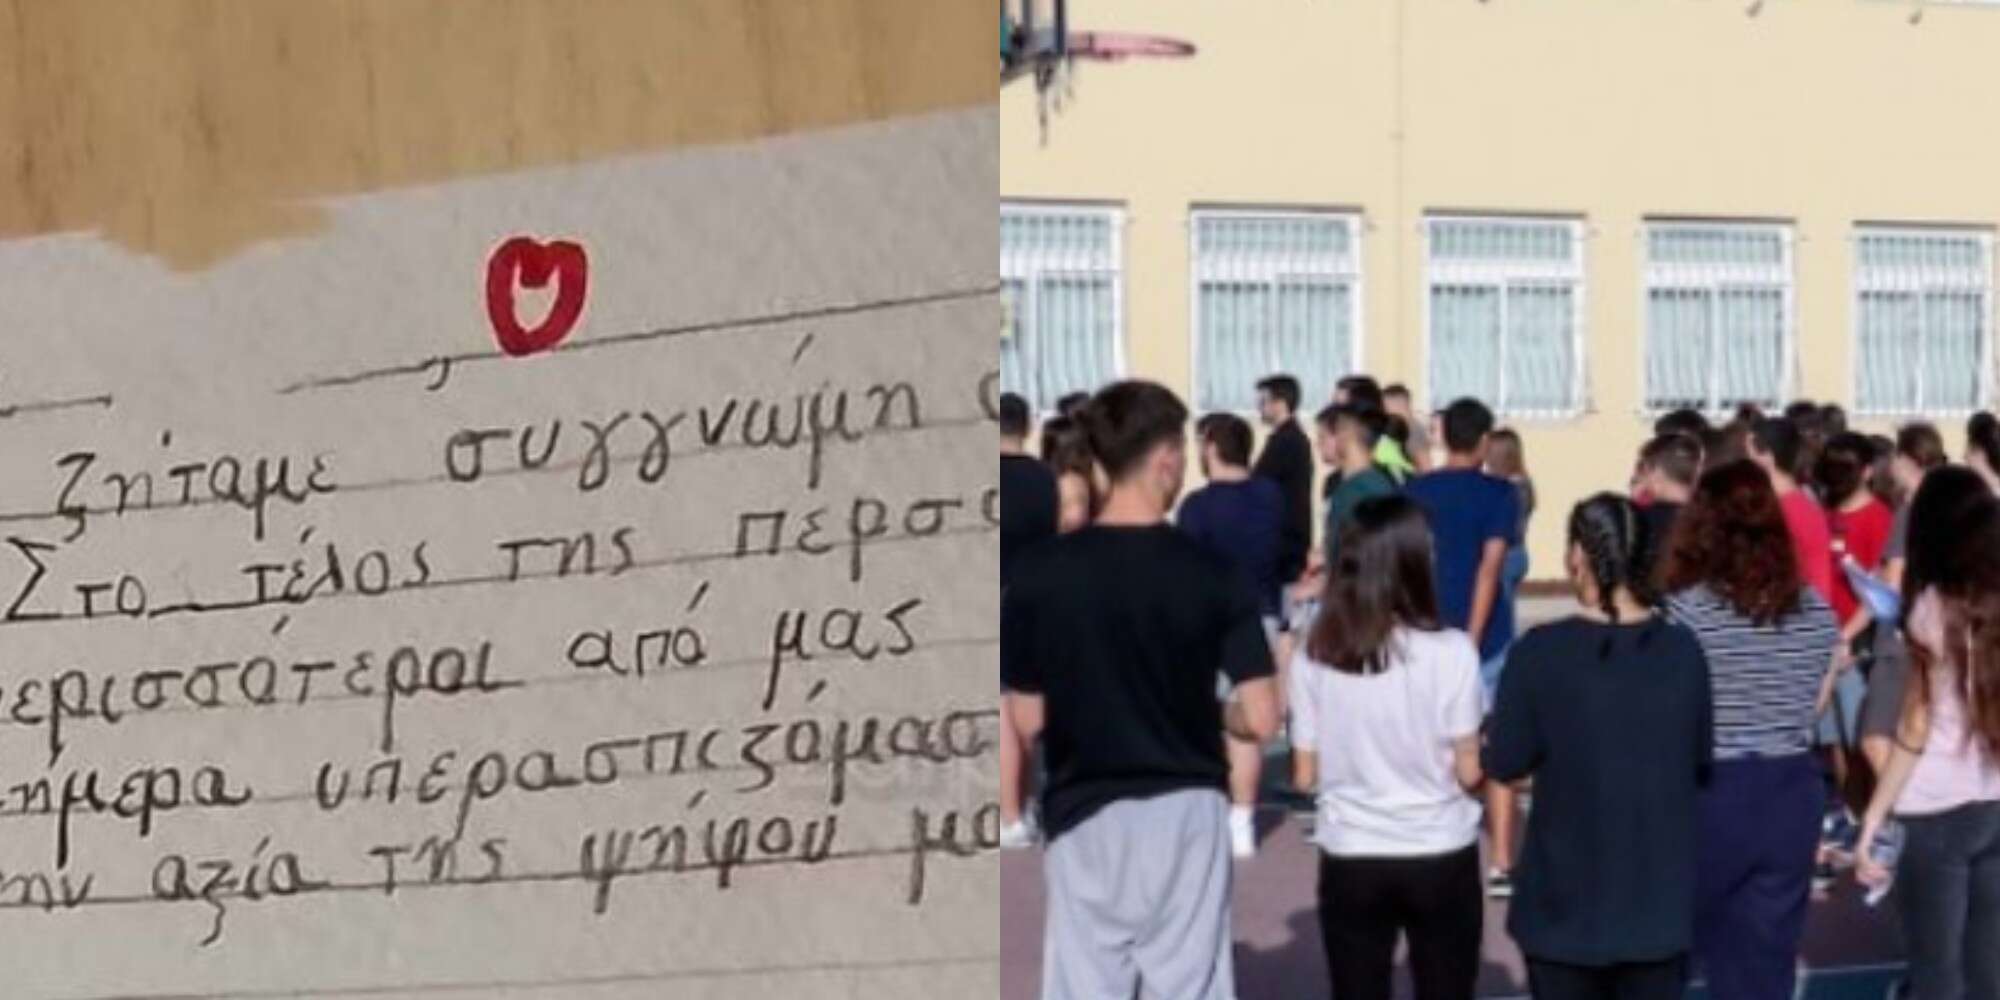 ζήταμε συγγνώμη
Στο τέλος της περσι
ερισσότεροι από μας
ήμερα υπερασπιζόμασ
ην αξία της ψήφου μα